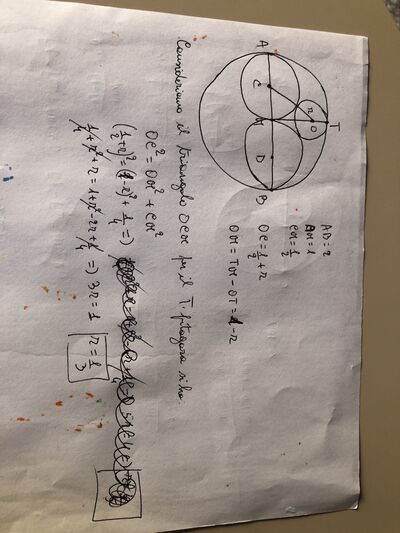 T
r
O
A
C
M
D
B
AB=2
AM=1
CM=1/2
OC=1/2+r
OM=TM-OT=1-r
Consideriamo il triangolo OCM per il T. pitagora si ha:
OC²=OM²+CM²
(1/2+r)²=(1-r)²+1/4 =>
1/4+r²+r=1+r²-2r+1/4 => 3r=1 r=1/3